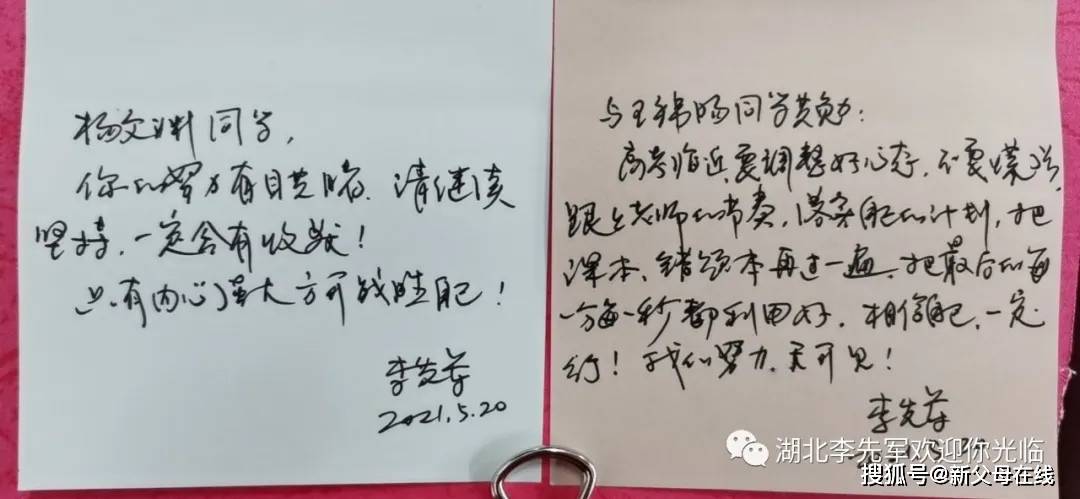 杨文渊同学,
你的努力有目共睹、请继续
坚持,一定会有收获!
只有内心强大方可战胜自己!
李先军
2021.5.20
与王锦旸同学共勉:
高考临近,要调整好心态,不要慌张,
跟上老师的节奏,落实自己的计划,把
课本、错题本再过一遍,把最后的每
一分每一秒都利用好,相信自己,一定
行!我们努力,天可见!
李先军
湖北李先军欢迎你光临
搜狐号@新父母在线